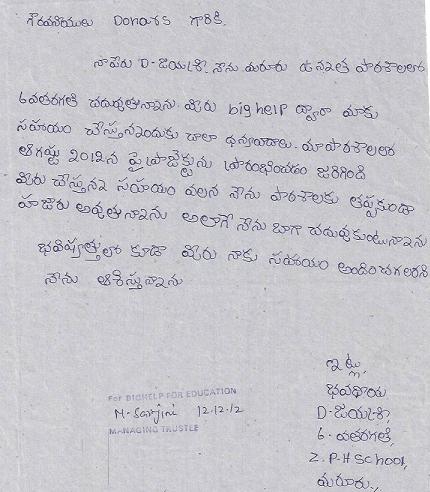 గౌరవనీయులు Donars గారికి,
నాపేరు D-జయశ్రీ. నేను మరూరు ఉన్నత పాఠశాలలో
6వతరగతి చదువుతున్నాను. మీరు big help ద్వారా మాకు
సహాయం చేస్తున్నందుకు చాలా ధన్యవాదాలు. మాపాఠశాలలో
ఆగష్టు 2012న ఫై ప్రాజెక్టును ప్రారంభించడం జరిగింది
మీరు చేస్తున్న సహాయం వలన నేను పాఠశాలకు తప్పకుండా
హాజరు అవుతున్నాను అలాగే నేను బాగా చదువుకుంటున్నాను
భవిష్యత్తులో కూడా మీరు నాకు సహాయం అందించగలరని
నేను ఆశిస్తున్నాను
ఇట్లు,
భవదీయ
D-జయశ్రీ,
6-వతరగతి,
Z.P.H School,
మరూరు.,
For BIGHELP FOR EDUCATION
M-Sarojini 12.12.12
MANAGING TRUSTEE